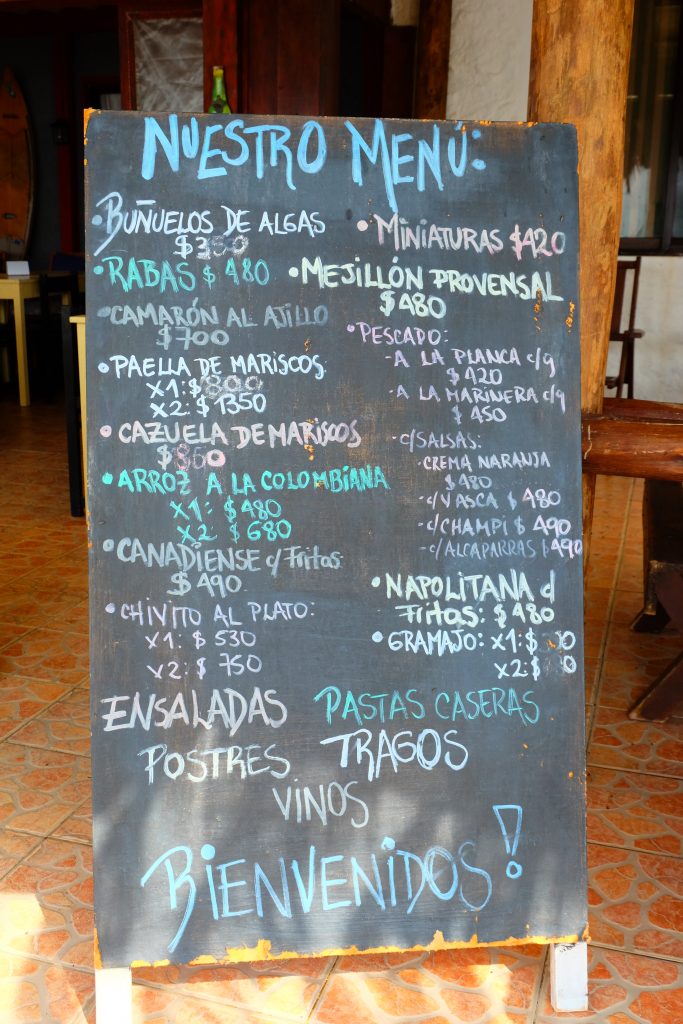 NUESTRO MENÚ:
• BUÑUELOS DE ALGAS
$350
• RABAS $ 480
• CAMARÓN AL AJILLO
$700
• PAELLA DE MARISCOS
X1: $800
X2: $ 1350
• CAZUELA DE MARISCOS
$850
• ARROZ A LA COLOMBIANA
X1: $ 480
X2: $ 680
• CANADIENSE c/ Fritas
$ 490
• CHIVITO AL PLATO:
X1: $ 530
X2: $ 750
• MINIATURAS $420
• MEJILLÓN PROVENSAL
$480
• PESCADO:
- A LA PLANCA c/g
$ 420
- A LA MARINERA c/g
$ 450
- c/SALSAS:
- CREMA NARANJA
$480
- c/VASCA $ 480
- c/CHAMPI $ 490
- c/ALCAPARRAS $490
• NAPOLITANA c/
Fritas: $ 480
• GRAMAJO: X1: $
X2: $
ENSALADAS
PASTAS CASERAS
POSTRES
TRAGOS
VINOS
BIENVENIDOS!